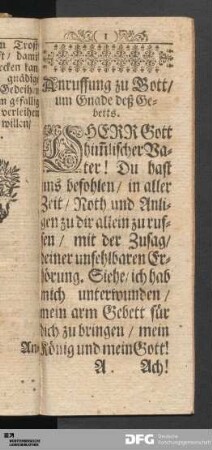 n Trost
ft / damit
ecken kan
gnädig
Gedeihen
n gefällig
verleihen
willen /
An-
1
Anruffung zu Gott /
um Gnade deß Ge-
betts.
O HERR Gott
him̃lischer Va-
ter! Du hast
uns befohlen / in aller
Zeit / Noth und Anli-
gen zu dir allein zu ruf-
fen / mit der Zusag /
deiner unfehlbaren Er-
hörung. Siehe / ich hab
mich unterwunden /
mein arm Gebett für
dich zu bringen / mein
König und mein Gott!
A Ach!
DFG Deutsche
Forschungsgemeinschaft